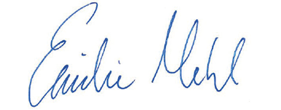 Emilie Mehl